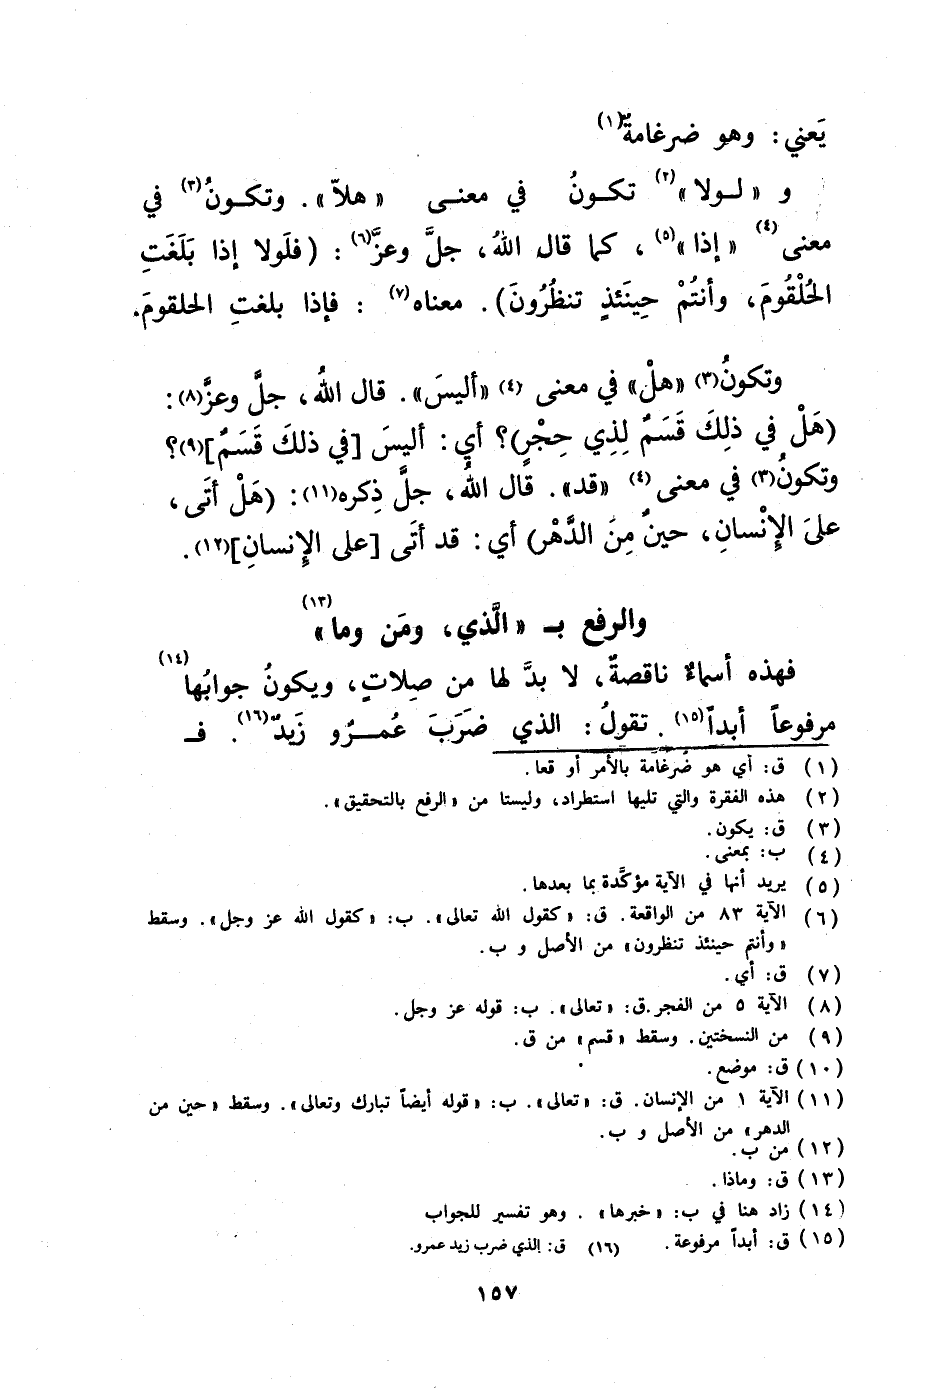 يَعني: وهو ضرغامةٌ(١)
و «لـولا»(٢) تكـونُ في معنـى «هلاّ». وتكـونُ(٣) في
معنى(٤) «إذا»(٥)، كما قال اللهُ، جلَّ وعزَّ(٦): (فلَولا إذا بَلَغَتِ
الحُلْقُومَ، وأنتُمْ حِينَئذٍ تنظُرُونَ). معناه(٧): فإذا بلغتِ الحلقومَ.
وتكونُ(٣) «هلْ» في معنى(٤) «أليسَ». قال اللهُ، جلَّ وعزَّ(٨):
(هَلْ في ذلِكَ قَسَمٌ لِذِي حِجْرٍ)؟ أي: أليسَ [في ذلكَ قَسَمٌ](٩)؟
وتكونُ(٣) في معنى(٤) «قد». قال اللهُ، جلَّ ذِكره(١١): (هَلْ أتَى،
علىَ الإنْسانِ، حينٌ مِنَ الدَّهْرِ) أي: قد أتَى [على الإنسانِ](١٢).
والرفع بـ «الَّذي، ومَن وما»(١٣)
فهذه أسماءٌ ناقصةٌ، لا بدَّ لها من صِلاتٍ، ويكونُ جوابُها(١٤)
مرفوعاً أبداً(١٥). تقولُ: الذي ضَرَبَ عُمـرٌو زَيدٌ(١٦). فـ
(١) ق: أي هو ضرغامة بالأمر أو قعا.
(٢) هذه الفقرة والتي تليها استطراد، وليستا من «الرفع بالتحقيق».
(٣) ق: يكون.
(٤) ب: بمعنى.
(٥) يريد أنها في الآية مؤكَّدة بما بعدها.
(٦) الآية ٨٣ من الواقعة. ق: «كقول الله تعالى». ب: «كقول الله عز وجل». وسقط
«وأنتم حينئذ تنظرون» من الأصل و ب.
(٧) ق: أي.
(٨) الآية ٥ من الفجر.ق: «تعالى». ب: قوله عز وجل.
(٩) من النسختين. وسقط «قسم» من ق.
(١٠) ق: موضع.
(١١) الآية ١ من الإنسان. ق: «تعالى». ب: «قوله أيضاً تبارك وتعالى». وسقط «حين من
الدهر» من الأصل و ب.
(١٢) من ب.
(١٣) ق: وماذا.
(١٤) زاد هنا في ب: «خبرها». وهو تفسير للجواب
(١٥) ق: أبداً مرفوعة. (١٦) ق: الذي ضرب زيد عمرو.
١٥٧